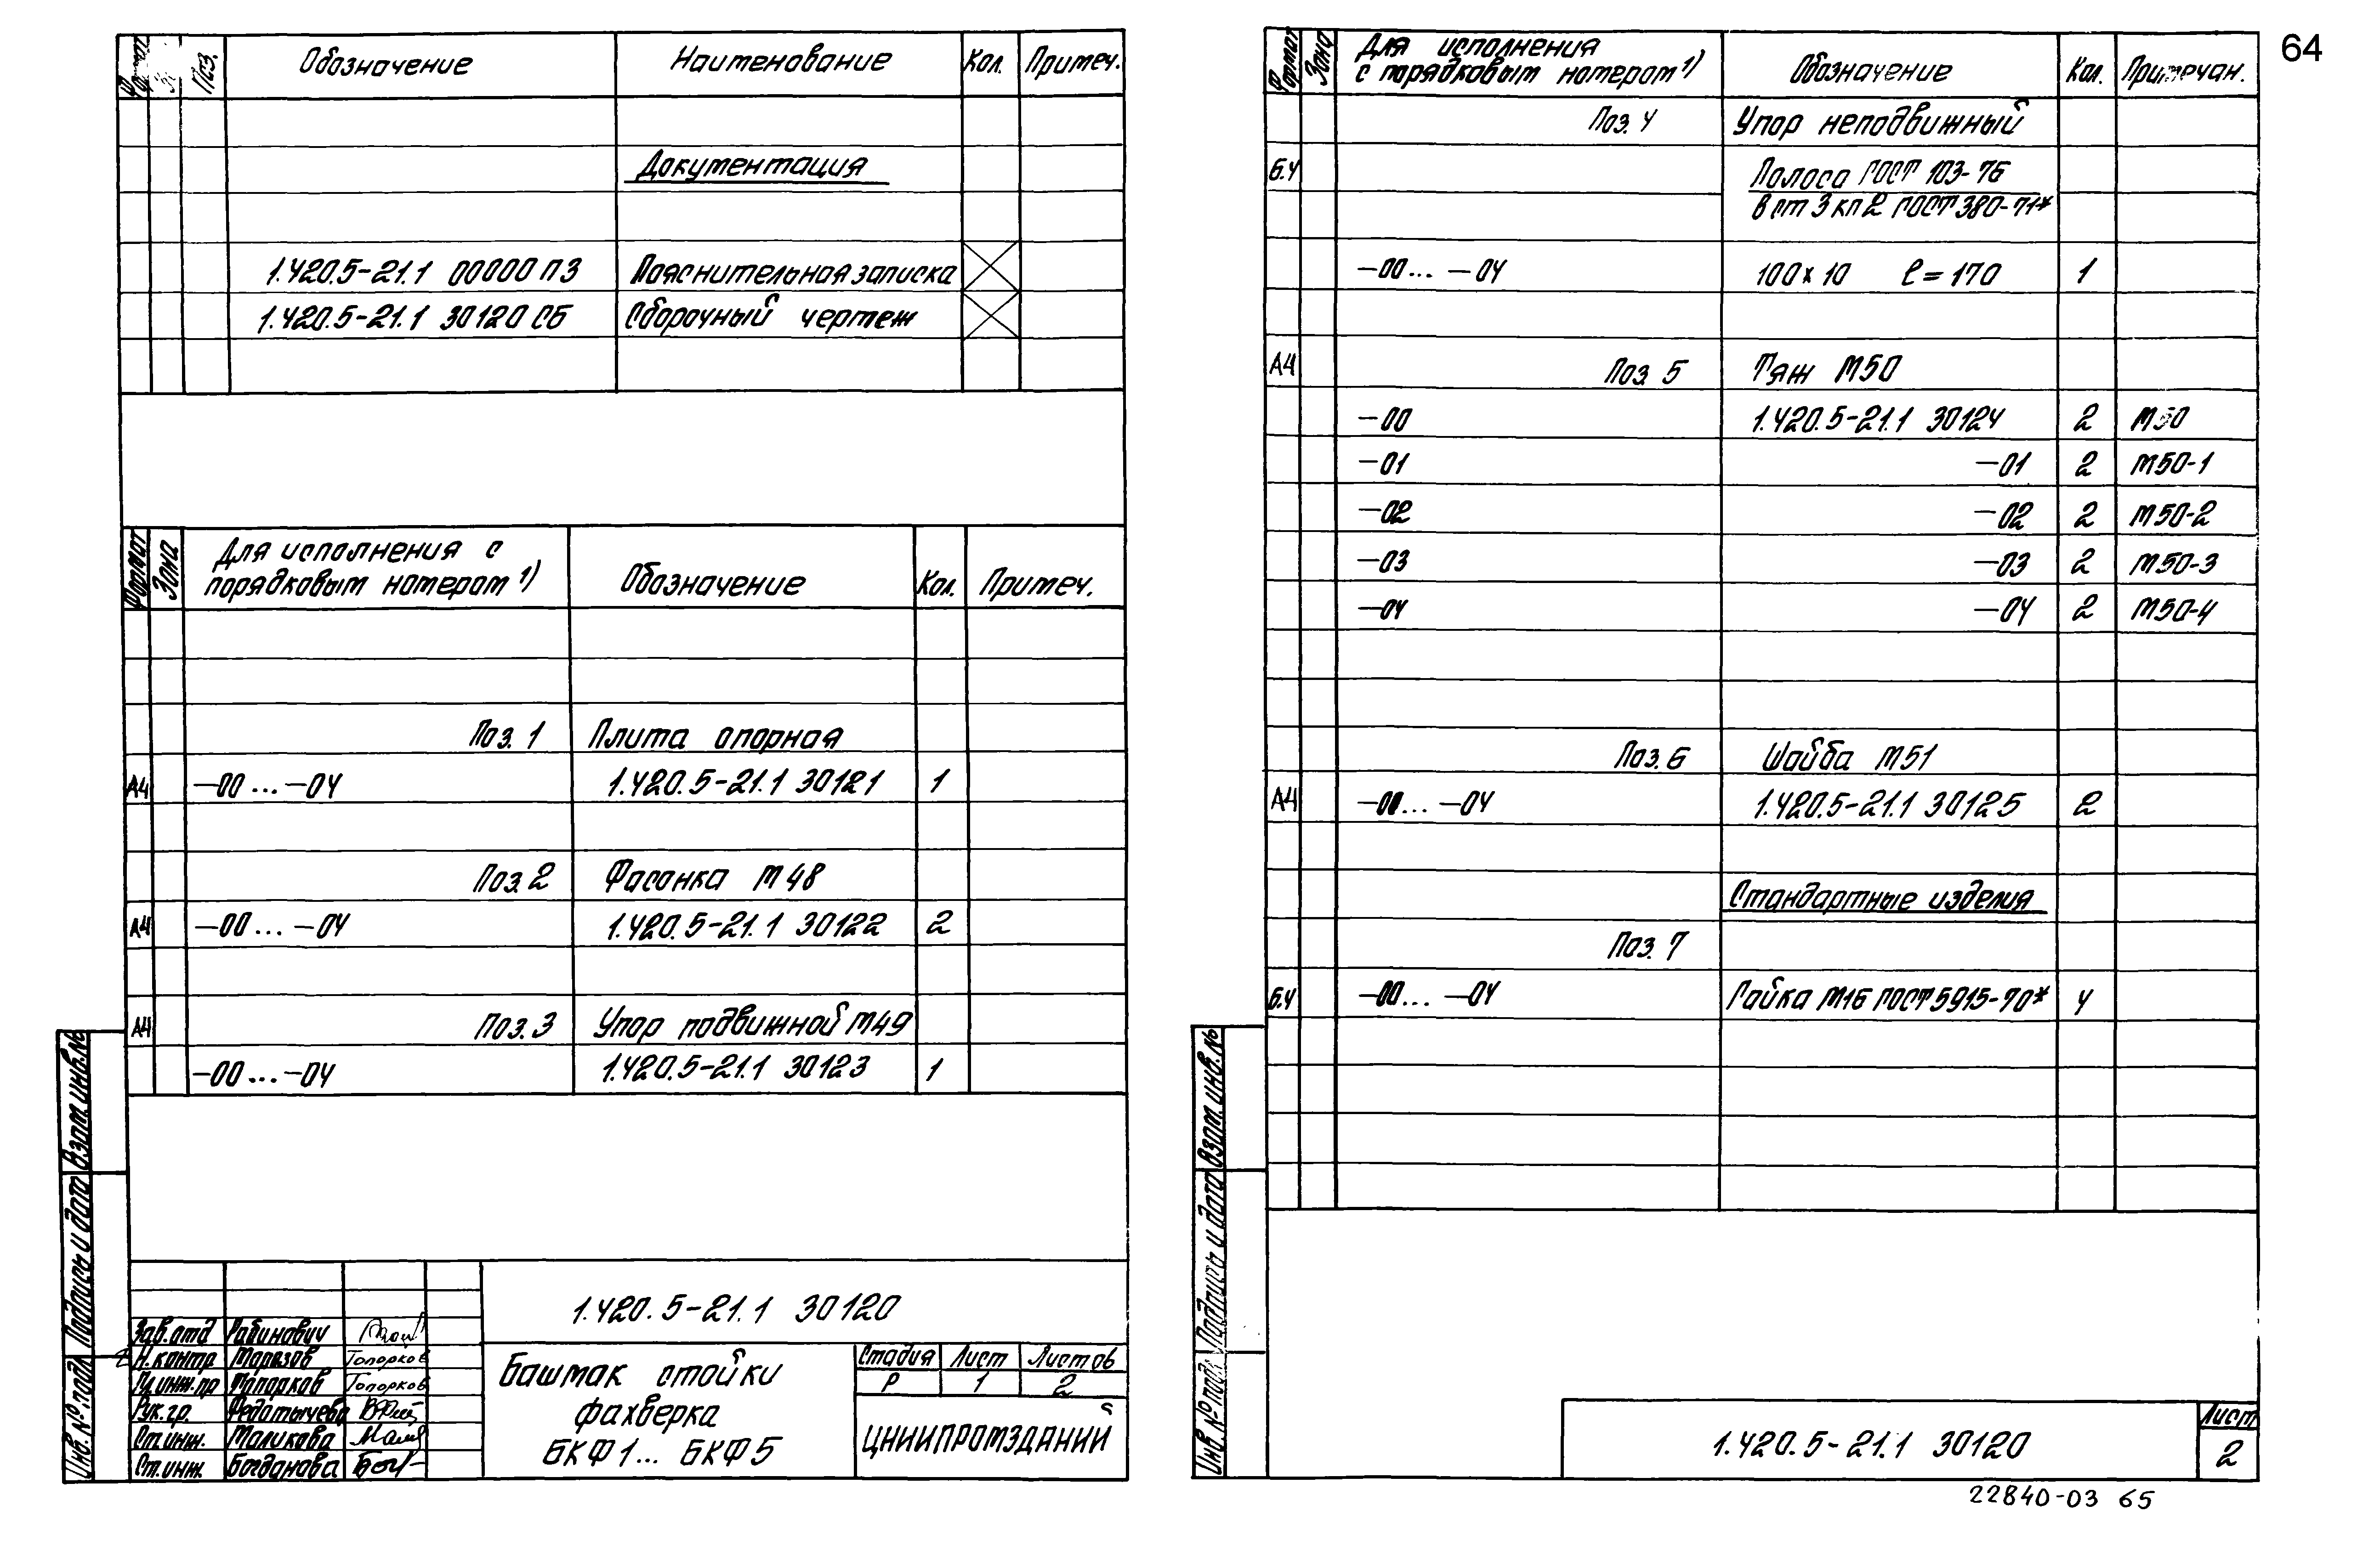 64
Формат Поз. Обозначение Наименование Кол. Примеч.
Документация
1.420.5-21.1 00000 ПЗ Пояснительная записка
1.420.5-21.1 30120 СБ Сборочный чертеж
Формат Зона Для исполнения с порядковым номером 1) Обозначение Кол. Примеч.
Поз. 1 Плита опорная
А4 -00 ... -04 1.420.5-21.1 30121 1
Поз. 2 Фасонка М48
А4 -00 ... -04 1.420.5-21.1 30122 2
А4 Поз. 3 Упор подвижной М49
-00 ... -04 1.420.5-21.1 30123 1
Взам. инв. №
Подпись и дата
Инв. № подл.
1.420.5-21.1 30120
Зав. отд Рабинович
Н. контр Морозов Топорков
Гл. инж. пр Топорков Топорков
Рук. гр. Федотычева
Ст. инж. Маликова
Ст. инж. Богданова
Башмак стойки
фахверка
БКФ1... БКФ5
Стадия Лист Листов
Р 1 2
ЦНИИПРОМЗДАНИЙ
Формат Зона Для исполнения с порядковым номером 1) Обозначение Кол. Примечан.
Поз. 4 Упор неподвижный
Б.Ч Полоса ГОСТ 103-76
В ст 3 кп 2 ГОСТ 380-71*
-00... -04 100×10 ℓ=170 1
А4 Поз. 5 Тяж М50
-00 1.420.5-21.1 30124 2 М50
-01 -01 2 М50-1
-02 -02 2 М50-2
-03 -03 2 М50-3
-04 -04 2 М50-4
Поз. 6 Шайба М51
А4 -00... -04 1.420.5-21.1 30125 2
Стандартные изделия
Поз. 7
Б.Ч -00... -04 Гайка М16 ГОСТ 5915-70* 4
Взам. инв. №
Подпись и дата
Инв. № подл.
1.420.5-21.1 30120
Лист
2
22840-03 65